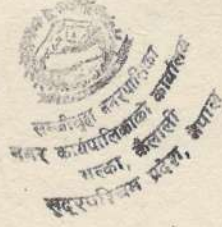 लम्कीचुहा नगरपालिका
नगर कार्यपालिकाको कार्यालय
लम्की, कैलाली
सुदूरपश्चिम प्रदेश, नेपाल